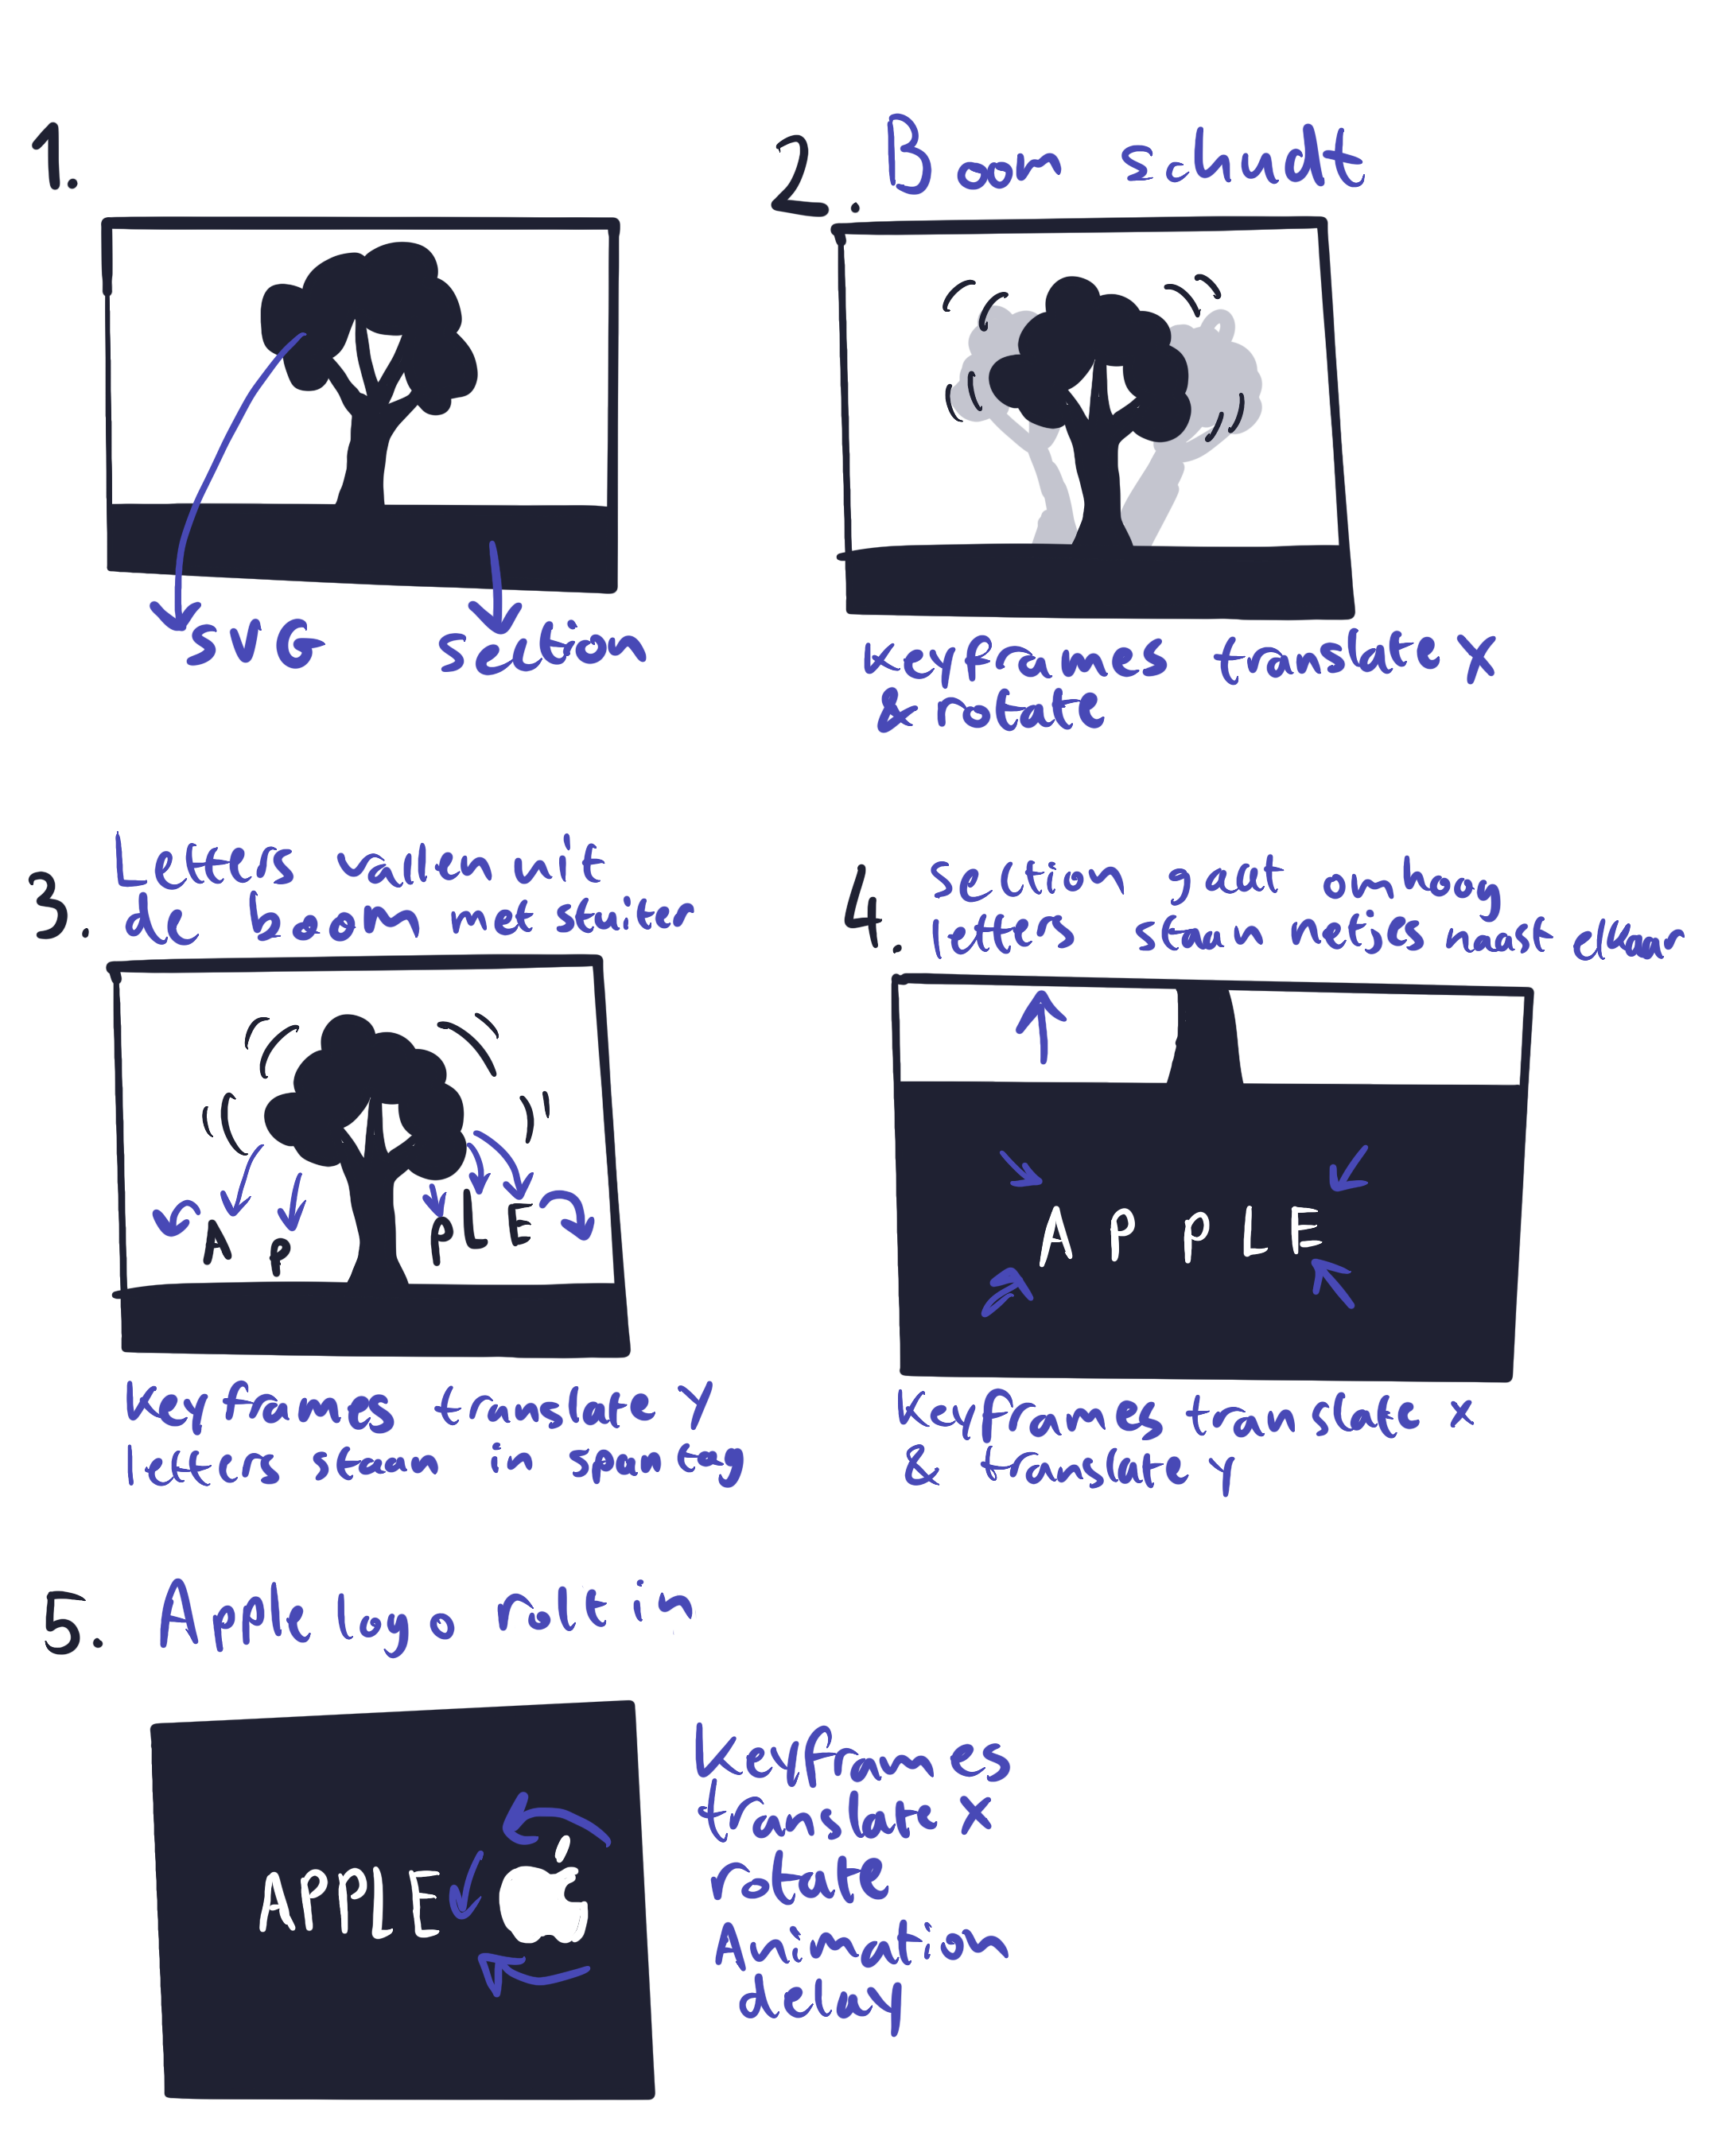 1.
SVG
section
2. Boom schudt
Keyframes translate X
& rotate
3. Letters vallen uit
de boom met stuiter
A P P L E
Keyframes translate Y
letters staan in span tag
4. section gaat omhoog
letters staan netjes naast elkaar
A P P L E
Keyframes translate x
& translate y
5. Apple logo rolt in
APPLE
Keyframes
translate X
rotate
Animation
delay